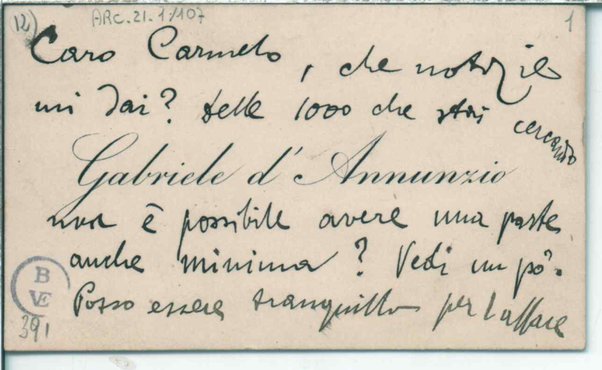 12)
ARC.21.1/107
1
Caro Carmelo, che notizie
mi dai? Delle 1000 che stai cercando
Gabriele d'Annunzio
non è possibile avere una parte
anche minima? Vedi un pò.
Posso essere tranquillo per l'affare
B
VE
391